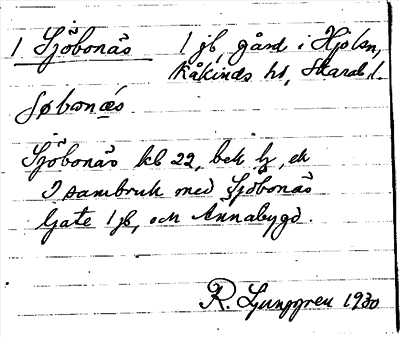 1 Sjöbonäs 1 jb, gård i Hjolsn,
Kåkinds hd, Skarab l.
søbənæs
Sjöbonäs kb 22, bek
I sambruk med Sjöbonäs
Gate 1 jb, och Annabygd.
R. Ljunggren 1930